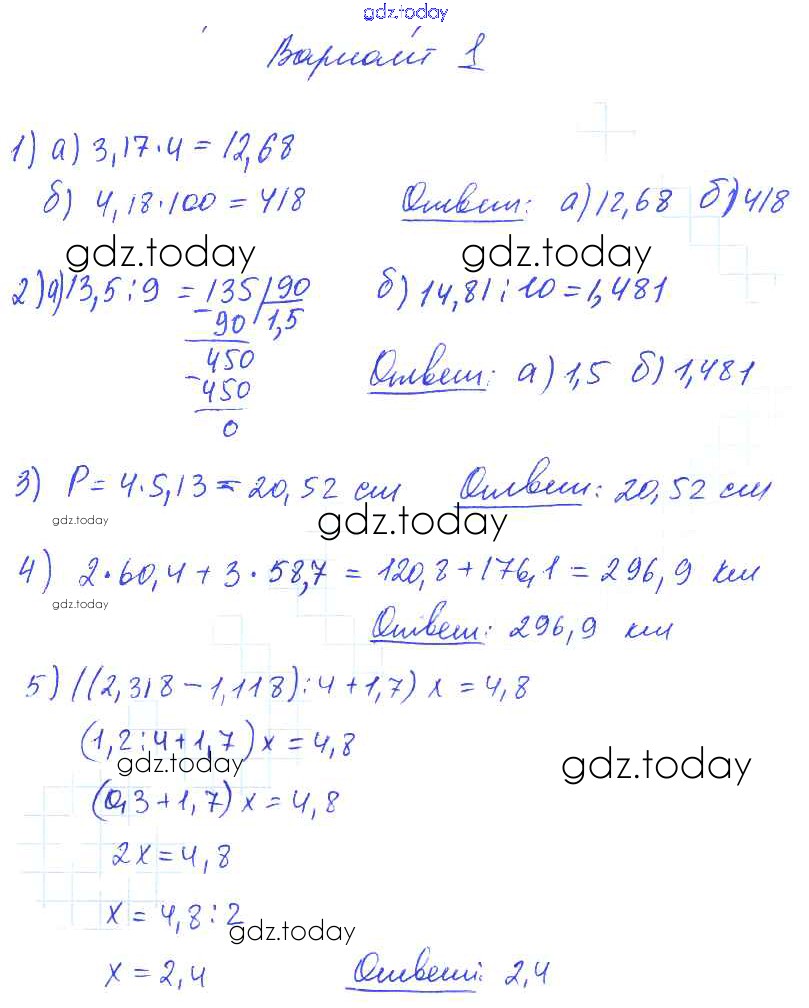 gdz.today
Вариант 1
1) а) 3,17·4 = 12,68
б) 4,18·100 = 418 Ответ: а) 12,68 б) 418
gdz.today gdz.today
2) а) 13,5:9 = 135 | 90 б) 14,81:10 = 1,481
- 90 | 1,5
450
- 450 Ответ: а) 1,5 б) 1,481
0
3) P = 4·5,13 = 20,52 см Ответ: 20,52 см
gdz.today gdz.today
4) 2·60,4 + 3·58,7 = 120,8 + 176,1 = 296,9 км
gdz.today
Ответ: 296,9 км
5) ((2,318 - 1,118):4 + 1,7) x = 4,8
(1,2:4 + 1,7) x = 4,8
gdz.today gdz.today
(0,3 + 1,7) x = 4,8
2x = 4,8
x = 4,8:2
gdz.today
x = 2,4 Ответ: 2,4